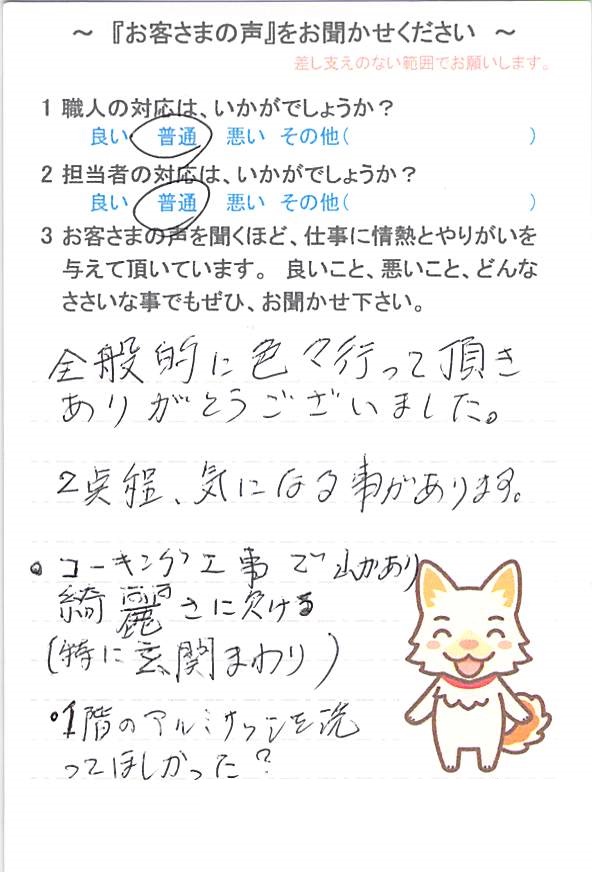 ～ 『お客さまの声』をお聞かせください ～
差し支えのない範囲でお願いします。
1 職人の対応は、いかがでしょうか？
良い 普通 悪い その他( )
2 担当者の対応は、いかがでしょうか？
良い 普通 悪い その他( )
3 お客さまの声を聞くほど、仕事に情熱とやりがいを
与えて頂いています。 良いこと、悪いこと、どんな
ささいな事でもぜひ、お聞かせ下さい。
全般的に色々行って頂き
ありがとうございました。
2点程、気になる事があります。
・コーキング工事で山があり
綺麗さに欠ける
(特に玄関まわり)
・1階のアルミサッシを洗
ってほしかった？